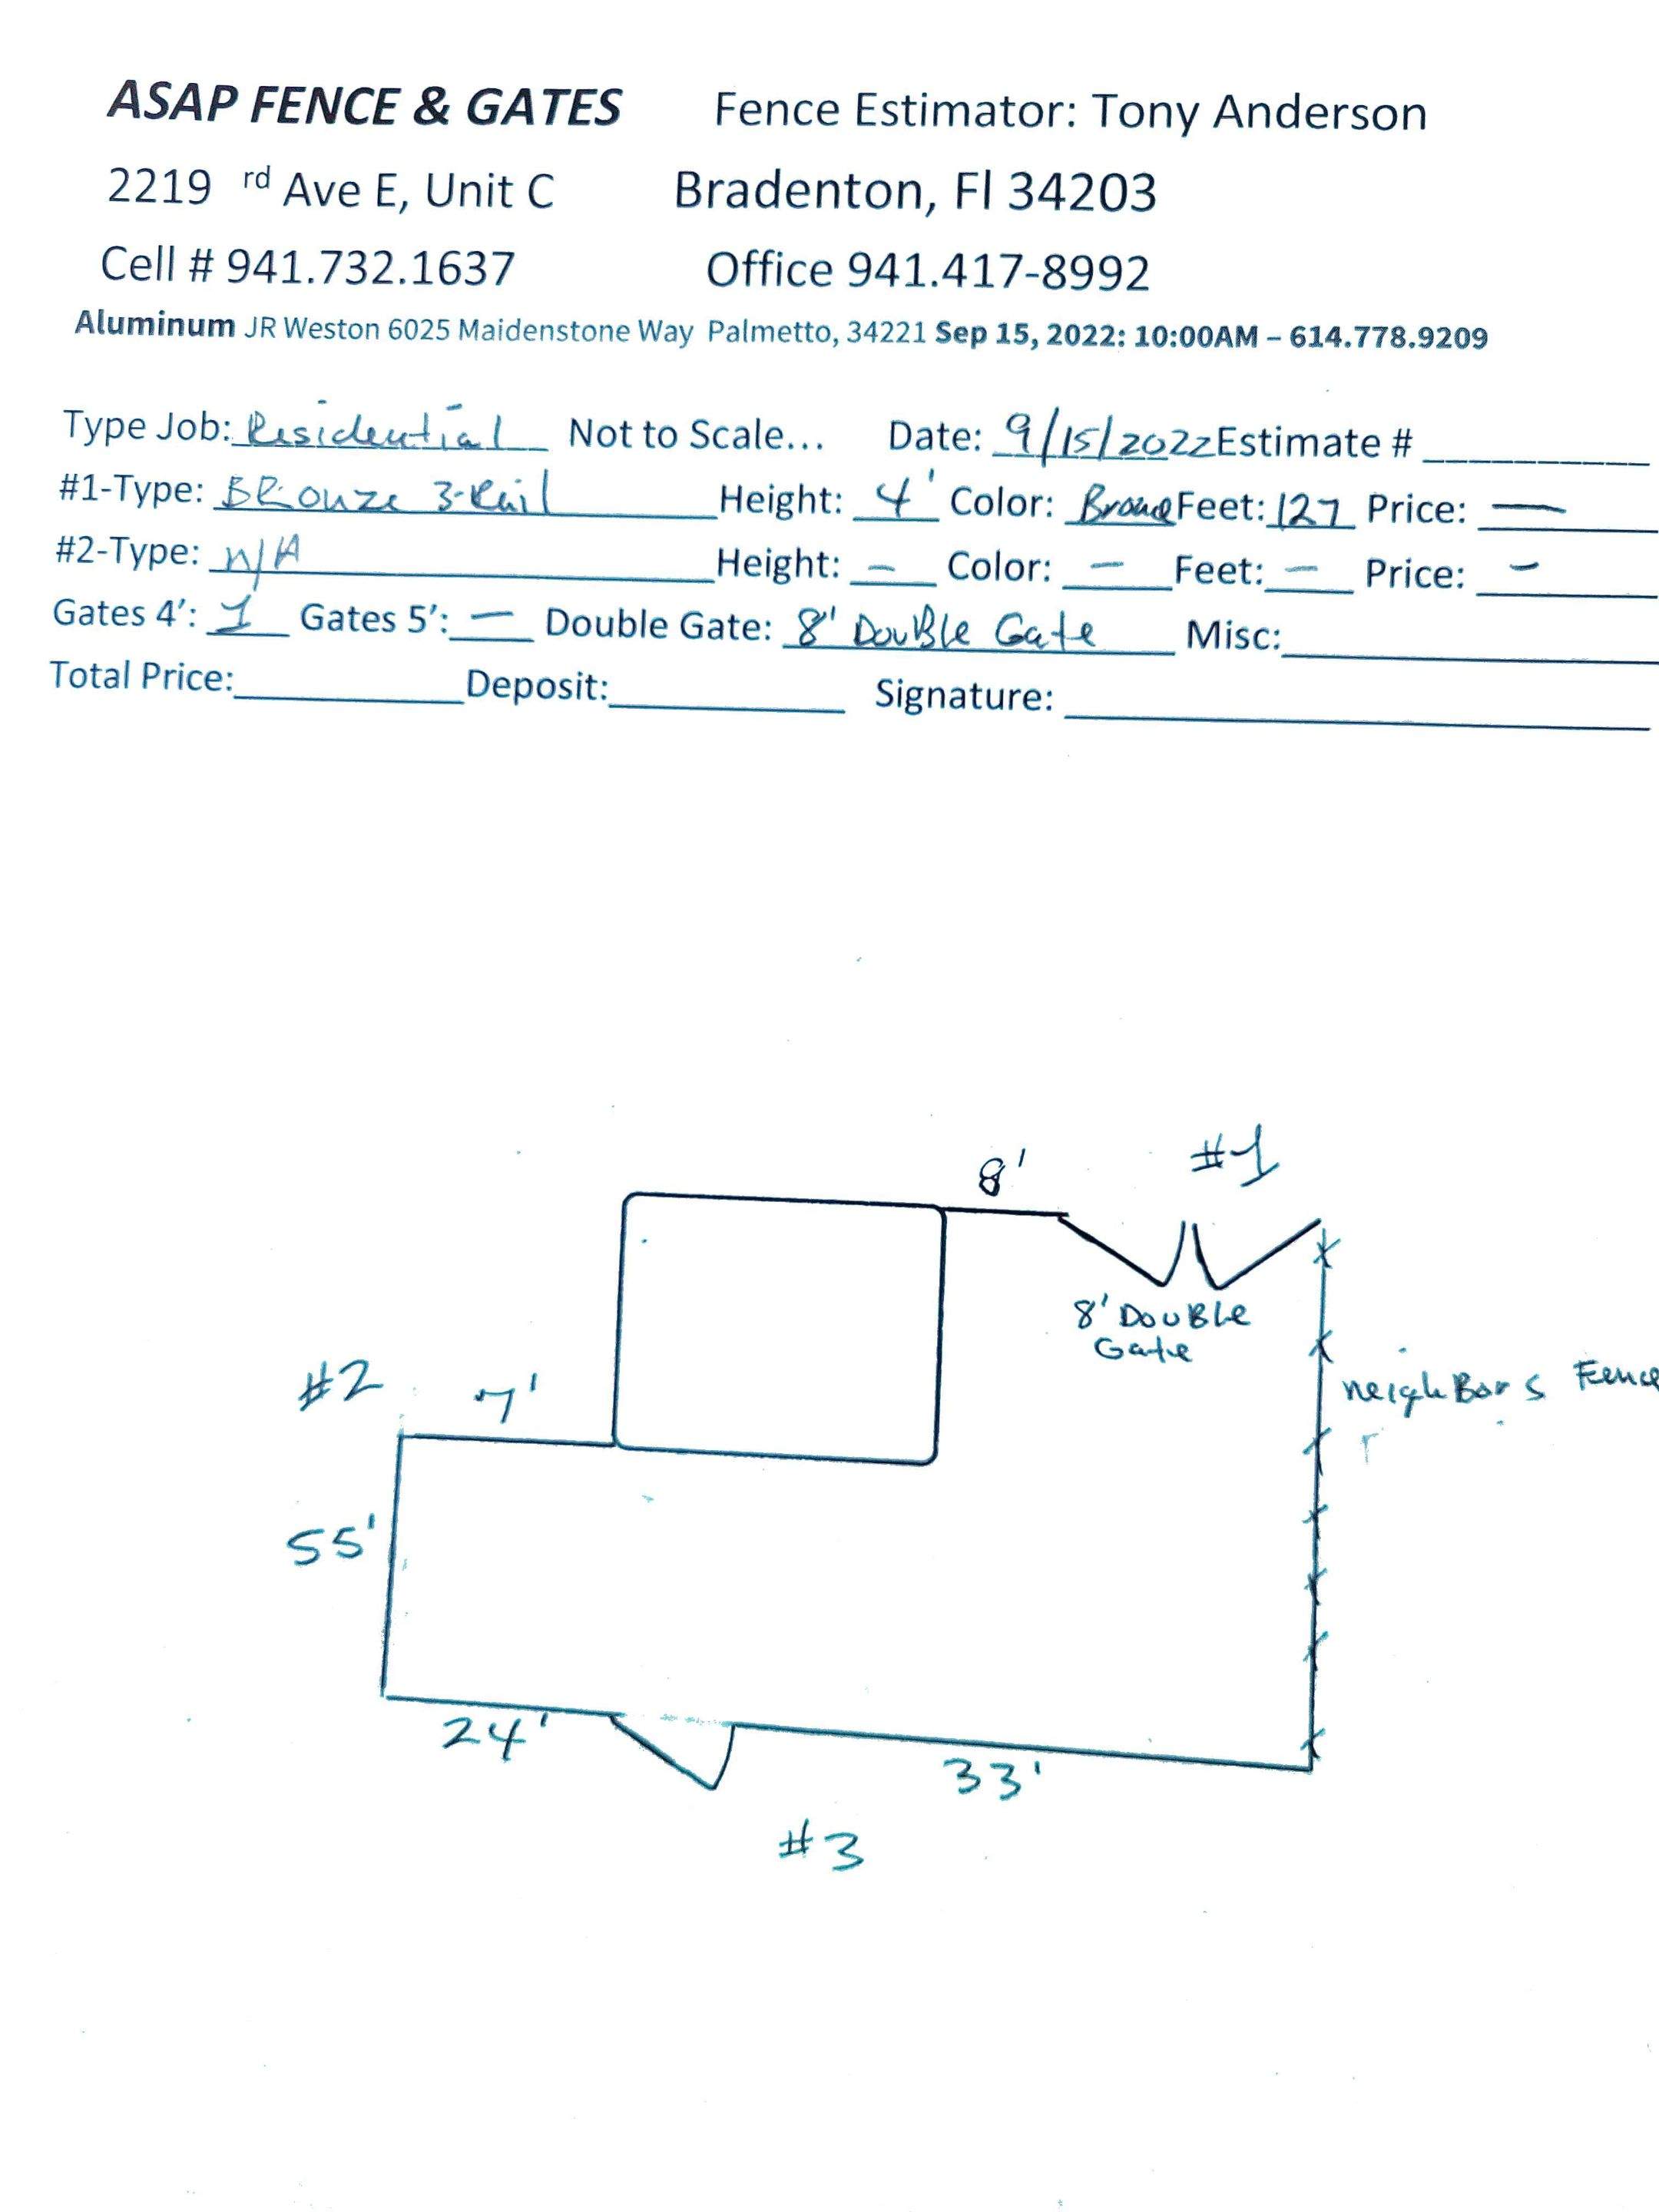 ASAP FENCE & GATES Fence Estimator: Tony Anderson
2219 rd Ave E, Unit C Bradenton, Fl 34203
Cell # 941.732.1637 Office 941.417-8992
Aluminum JR Weston 6025 Maidenstone Way Palmetto, 34221 Sep 15, 2022: 10:00AM – 614.778.9209
Type Job: Residential Not to Scale... Date: 9/15/2022 Estimate #
#1-Type: BRonze 3-Rail Height: 4' Color: Bronze Feet: 127 Price: —
#2-Type: N/A Height: — Color: — Feet: — Price: -
Gates 4': 1 Gates 5': — Double Gate: 8' DouBle Gate Misc:
Total Price: Deposit: Signature:
#1
8'
8' DouBLe
Gate
#2
7'
neighBors Fence
55'
24'
33'
#3